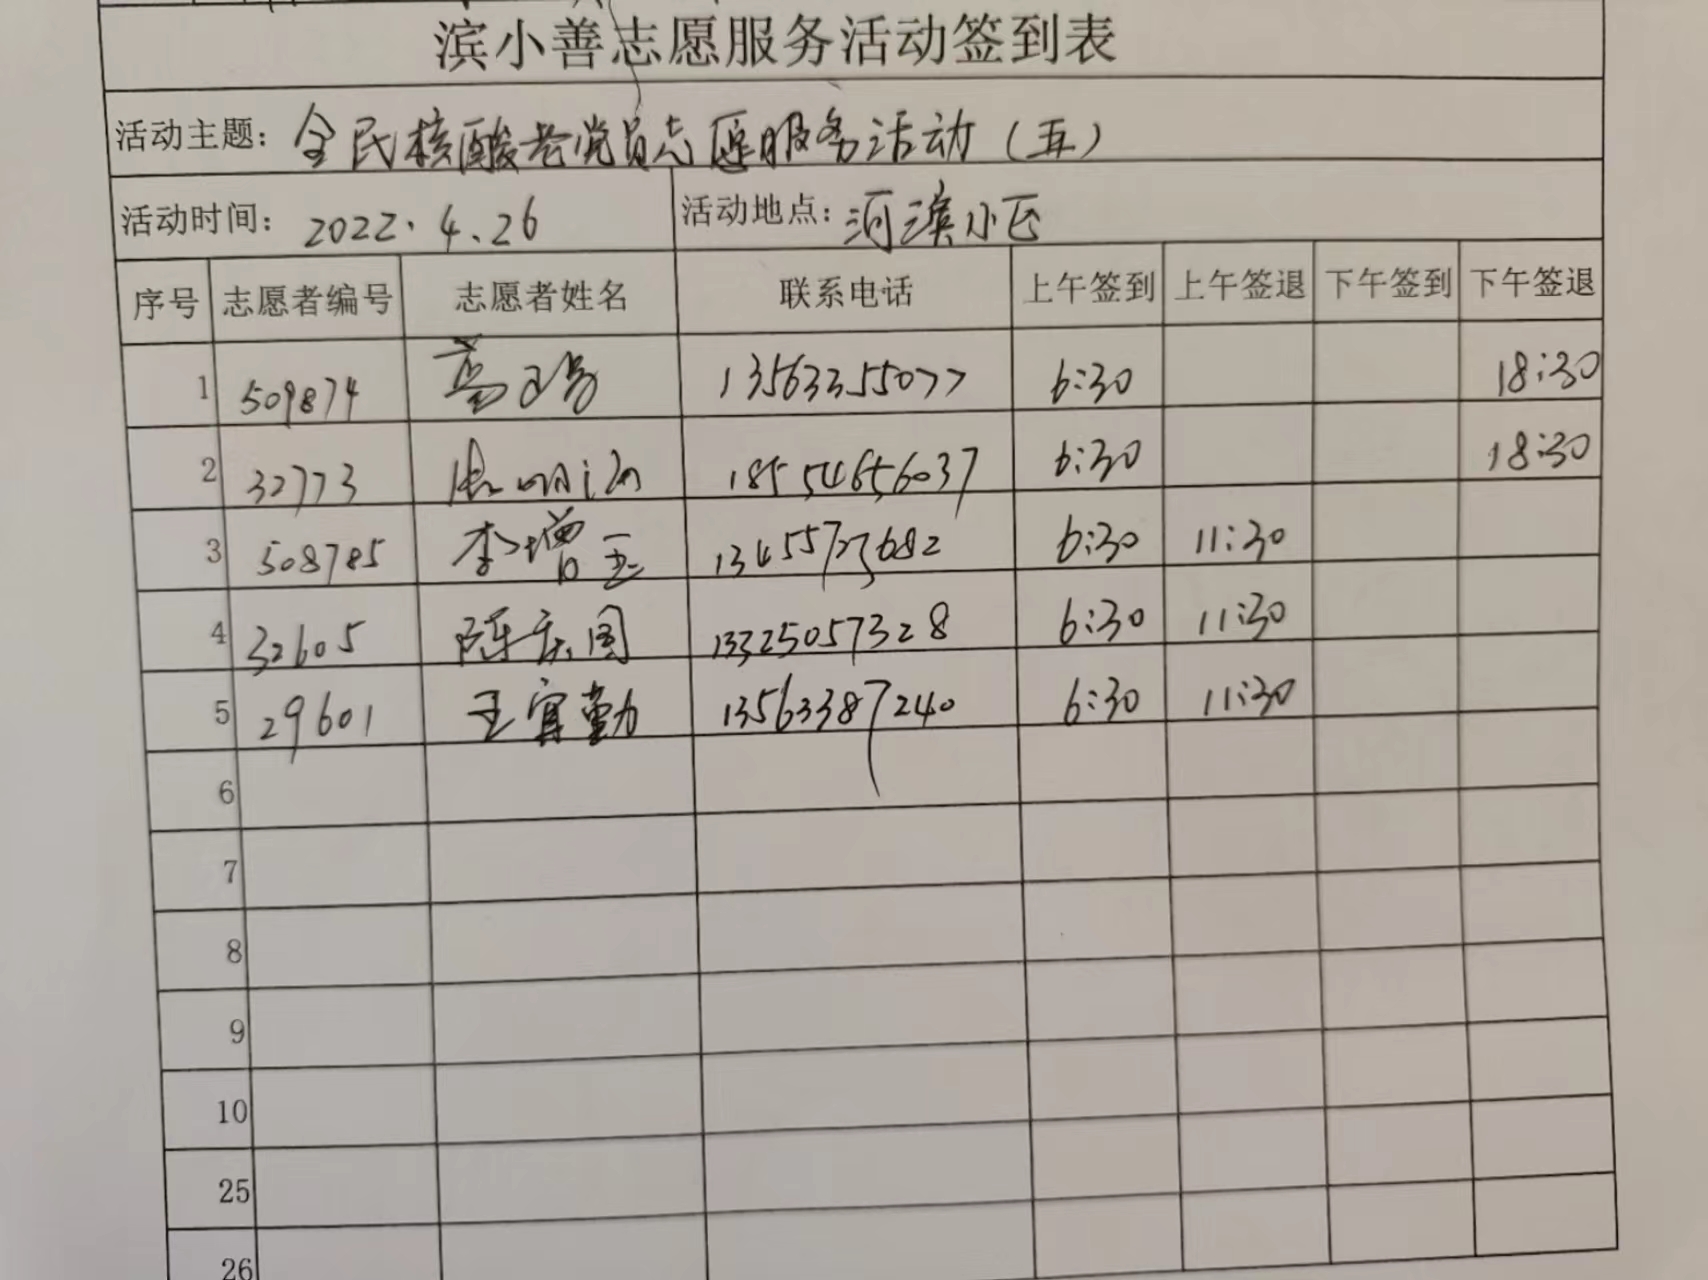 滨小善志愿服务活动签到表
活动主题: 全民核酸老党员志愿服务活动(五)
活动时间: 2022.4.26 活动地点: 河滨小区
序号 志愿者编号 志愿者姓名 联系电话 上午签到 上午签退 下午签到 下午签退
1 509874 13563355077 6:30 18:30
2 32773 18554656037 6:30 18:30
3 508785 李增玉 13455723682 6:30 11:30
4 32605 陈庆国 13325057328 6:30 11:30
5 29601 王宜勤 13563387240 6:30 11:30
6
7
8
9
10
25
26